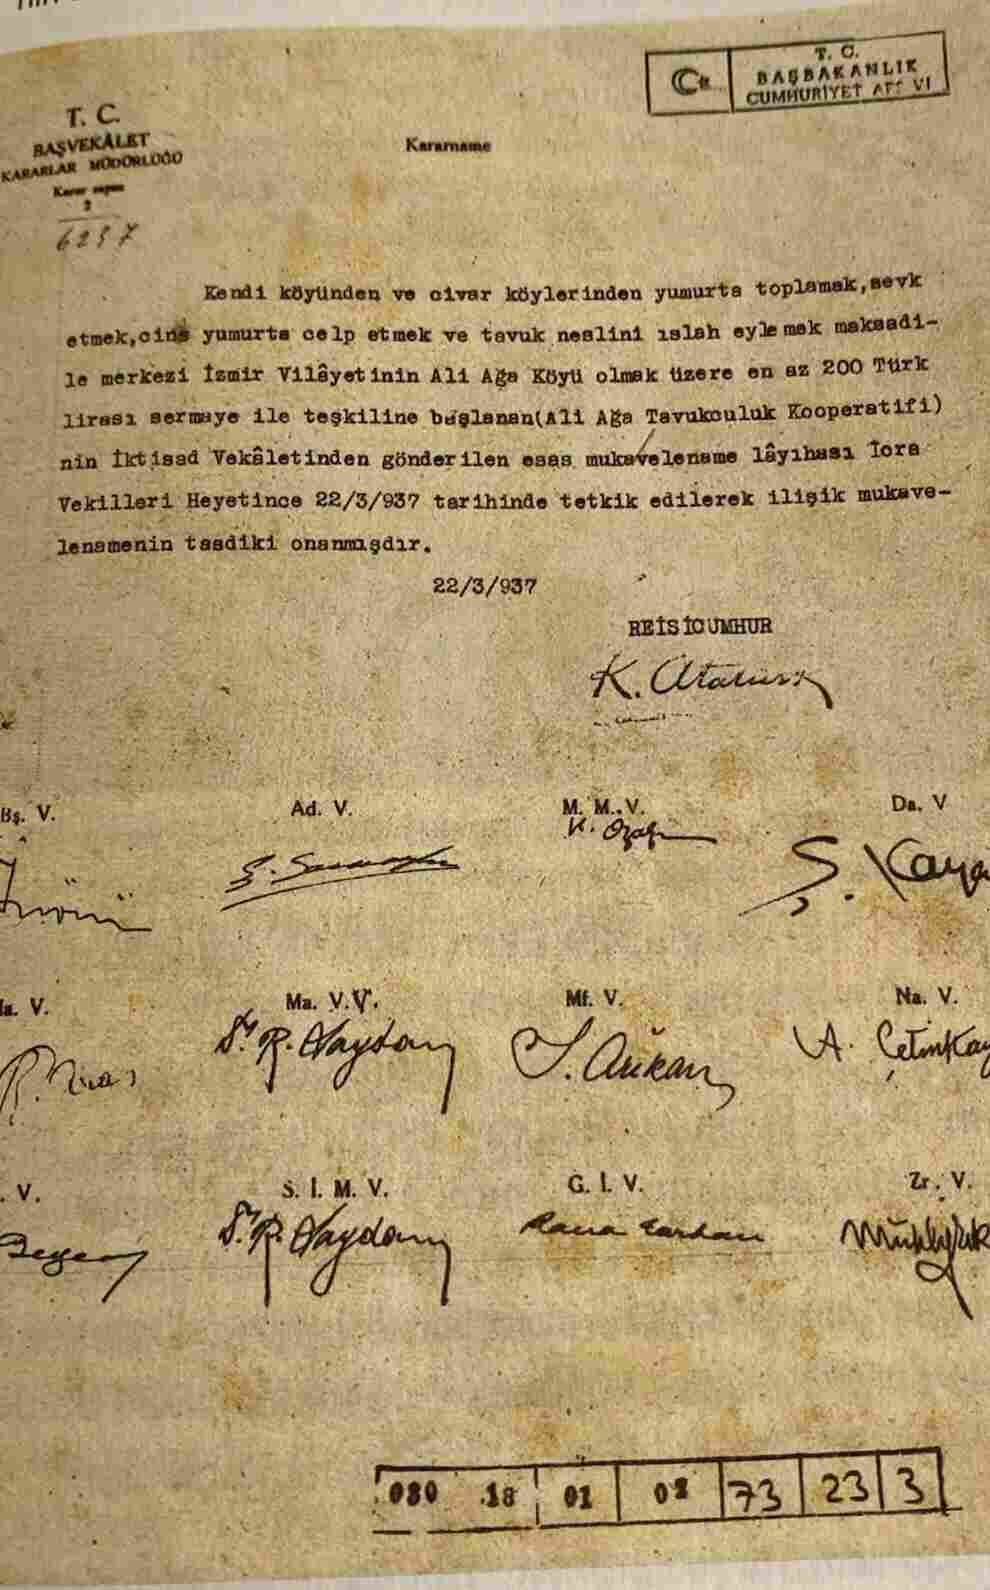 T. C.
BAŞBAKANLIK
CUMHURİYET
T. C.
BAŞVEKÂLET
KARARLAR MÜDÜRLÜĞÜ
Karar sayısı
2
Kararname
Kendi köyünden ve civar köylerinden yumurta toplamak,sevk
etmek,cins yumurta celp etmek ve tavuk neslini ıslah eylemek maksadi-
le merkezi İzmir Vilâyetinin Ali Ağa Köyü olmak üzere en az 200 Türk
lirası sermaye ile teşkiline başlanan(Ali Ağa Tavukculuk Kooperatifi)
nin İktisad Vekâletinden gönderilen esas mukavelename lâyıhası İcra
Vekilleri Heyetince 22/3/937 tarihinde tetkik edilerek ilişik mukave-
lenamenin tasdiki onanmışdır.
22/3/937
REİSİCUMHUR
K. Atatürk
Bş. V. Ad. V. M. M. V. Da. V
İnönü K. Özalp Ş. Kaya
V. Ma. V.V. Mf. V. Na. V.
Dr R. Saydam A. Çetinkaya
V. S. İ. M. V. G. İ. V. Zr. V.
Dr R. Saydam Rana Tarhan
030 .18 01 02 73 23 3